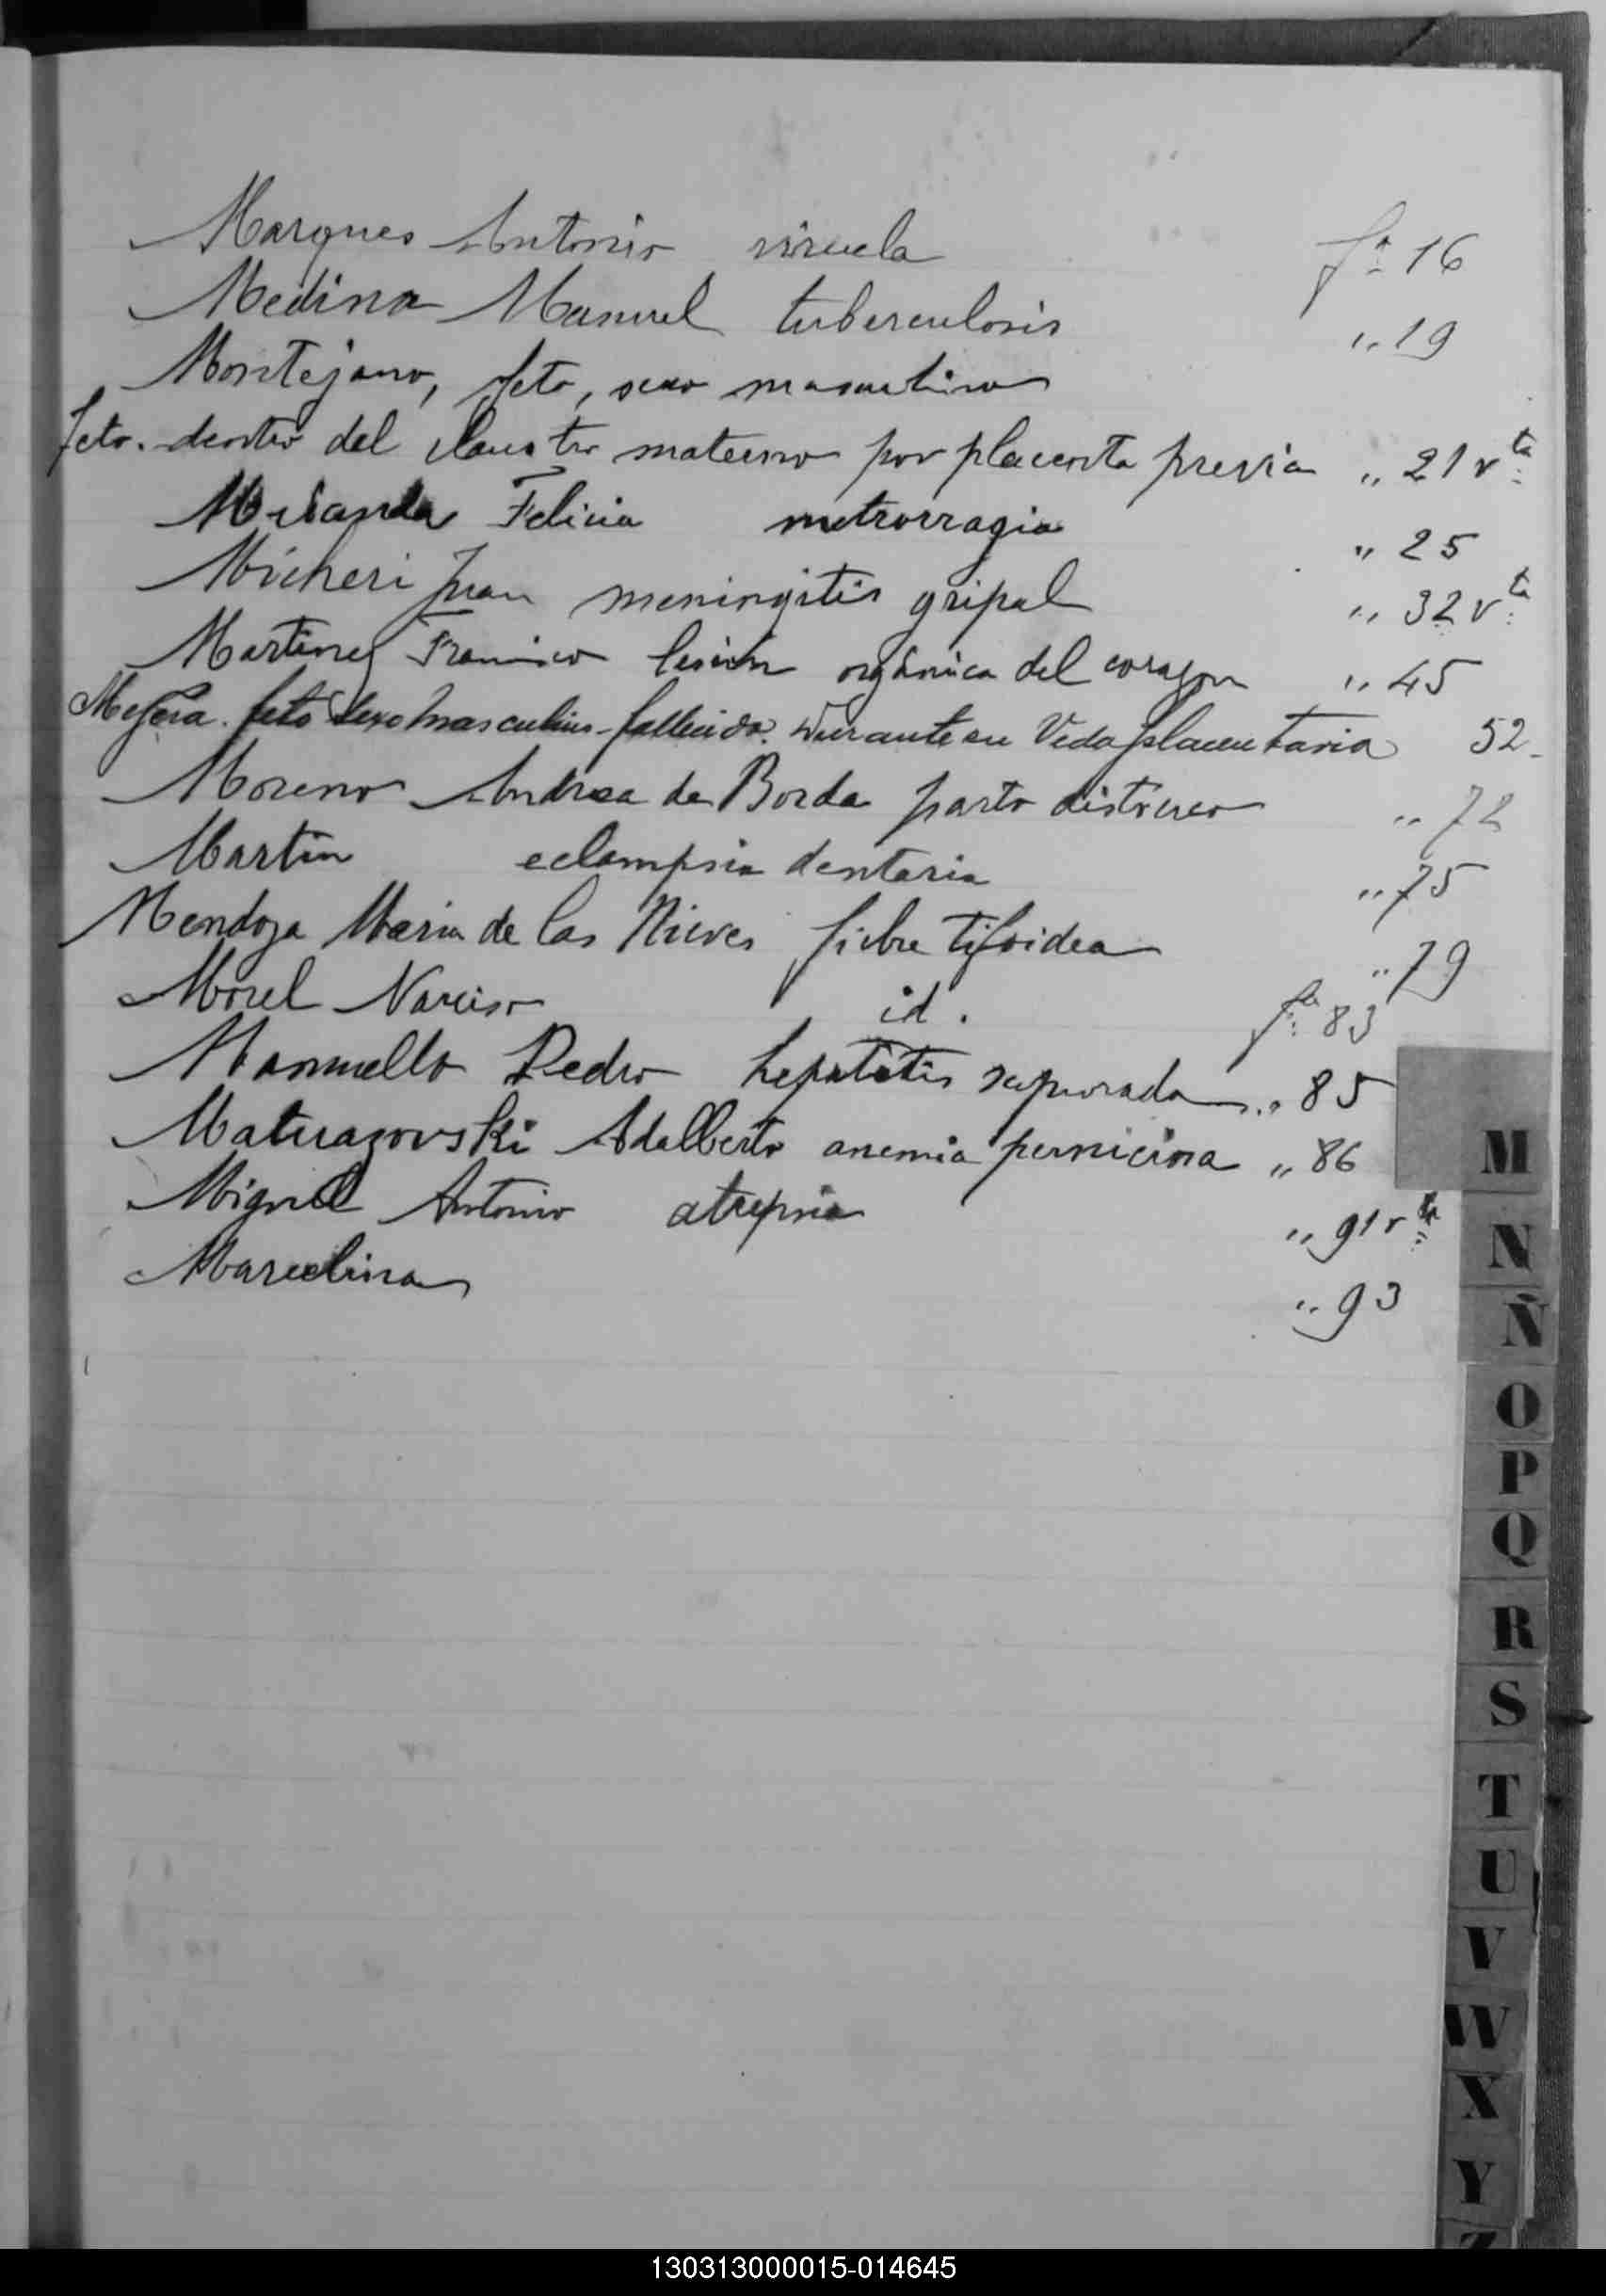 Marques Antonio viruela fª 16
Medina Manuel tuberculosis „ 19
Montejano, feto, sexo masculino
feto. dentro del claustro materno por placenta previa „ 21 vta
Miranda Felicia metrorragia „ 25
Micheri Juan meningitis gripal „ 32 vta
Martinez Francisco lesión orgánica del corazon „ 45
feto sexo masculino - fallecido. durante su Vida placentaria 52-
Moreno Andrea de Borda parto distocico „ 72
Martin eclampsia dentaria „ 75
Mendoza Maria de las Nieves fiebre tifoidea „ 79
Morel Narciso id. fª 83
Mannello Pedro hepatitis supurada „ 85
Adalberto anemia perniciosa „ 86
Miguel Antonio atrepsia „ 91 vta
Marcelina „ 93
M
N
Ñ
O
P
Q
R
S
T
U
V
W
X
Y
Z
130313000015-014645